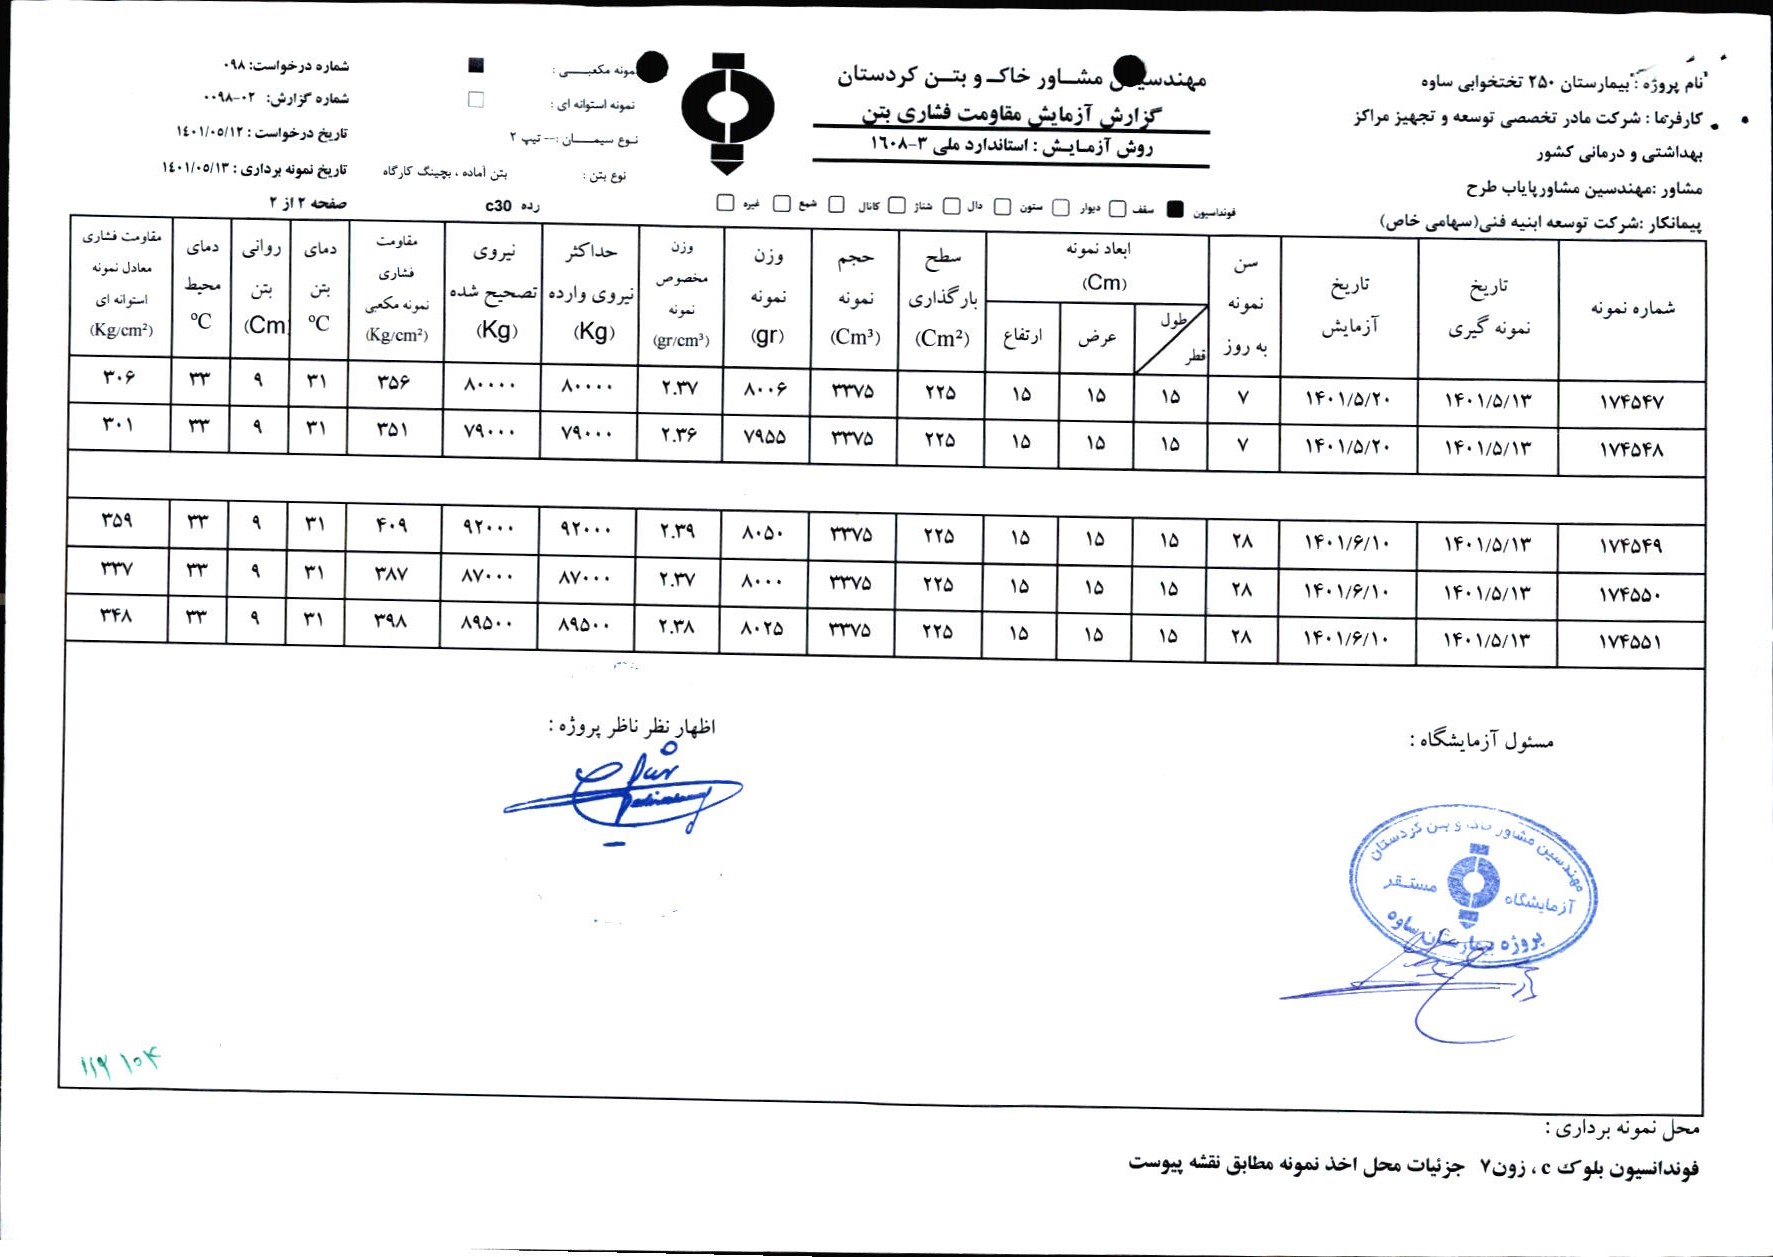 نام پروژه : بیمارستان ۲۵۰ تختخوابی ساوه
کارفرما : شرکت مادر تخصصی توسعه و تجهیز مراکز
بهداشتی و درمانی کشور
مشاور :مهندسین مشاورپایاب طرح
پیمانکار :شرکت توسعه ابنیه فنی(سهامی خاص)
مهندسین مشـاور خاک و بتـن کردستان
گزارش آزمایش مقاومت فشاری بتن
روش آزمـایـش : استاندارد ملی ۳-۱۶۰۸
نمونه مکعبـــی :
نمونه استوانه ای :
نـوع سیمـــان :-- تیپ ۲
نوع بتن : بتن آماده ، بچینگ کارگاه
رده c30
شماره درخواست: ۰۹۸
شماره گزارش: ۰۲-۰۰۹۸
تاریخ درخواست : ۱۴۰۱/۰۵/۱۲
تاریخ نمونه برداری : ۱۴۰۱/۰۵/۱۳
صفحه ۲ از ۲
فونداسیون سقف دیوار ستون دال شناژ کانال شمع غیره
شماره نمونه
تاریخ نمونه گیری
تاریخ آزمایش
سن نمونه به روز
ابعاد نمونه (Cm)
طول قطر
عرض
ارتفاع
سطح بارگذاری (Cm²)
حجم نمونه (Cm³)
وزن نمونه (gr)
وزن مخصوص نمونه (gr/cm³)
حداکثر نیروی وارده (Kg)
نیروی تصحیح شده (Kg)
مقاومت فشاری نمونه مکعبی (Kg/cm²)
دمای بتن °C
روانی بتن (Cm)
دمای محیط °C
مقاومت فشاری معادل نمونه استوانه ای (Kg/cm²)
۱۷۴۵۴۷ ۱۴۰۱/۵/۱۳ ۱۴۰۱/۵/۲۰ ۷ ۱۵ ۱۵ ۱۵ ۲۲۵ ۳۳۷۵ ۸۰۰۶ ۲.۳۷ ۸۰۰۰۰ ۸۰۰۰۰ ۳۵۶ ۳۱ ۹ ۳۳ ۳۰۶
۱۷۴۵۴۸ ۱۴۰۱/۵/۱۳ ۱۴۰۱/۵/۲۰ ۷ ۱۵ ۱۵ ۱۵ ۲۲۵ ۳۳۷۵ ۷۹۵۵ ۲.۳۶ ۷۹۰۰۰ ۷۹۰۰۰ ۳۵۱ ۳۱ ۹ ۳۳ ۳۰۱
۱۷۴۵۴۹ ۱۴۰۱/۵/۱۳ ۱۴۰۱/۶/۱۰ ۲۸ ۱۵ ۱۵ ۱۵ ۲۲۵ ۳۳۷۵ ۸۰۵۰ ۲.۳۹ ۹۲۰۰۰ ۹۲۰۰۰ ۴۰۹ ۳۱ ۹ ۳۳ ۳۵۹
۱۷۴۵۵۰ ۱۴۰۱/۵/۱۳ ۱۴۰۱/۶/۱۰ ۲۸ ۱۵ ۱۵ ۱۵ ۲۲۵ ۳۳۷۵ ۸۰۰۰ ۲.۳۷ ۸۷۰۰۰ ۸۷۰۰۰ ۳۸۷ ۳۱ ۹ ۳۳ ۳۳۷
۱۷۴۵۵۱ ۱۴۰۱/۵/۱۳ ۱۴۰۱/۶/۱۰ ۲۸ ۱۵ ۱۵ ۱۵ ۲۲۵ ۳۳۷۵ ۸۰۲۵ ۲.۳۸ ۸۹۵۰۰ ۸۹۵۰۰ ۳۹۸ ۳۱ ۹ ۳۳ ۳۴۸
مسئول آزمایشگاه :
اظهار نظر ناظر پروژه :
مهندسین مشاور خاک و بتن کردستان
آزمایشگاه مستـقر
پروژه بیمارستان ساوه
محل نمونه برداری :
فوندانسیون بلوک c ، زون۷ جزئیات محل اخذ نمونه مطابق نقشه پیوست